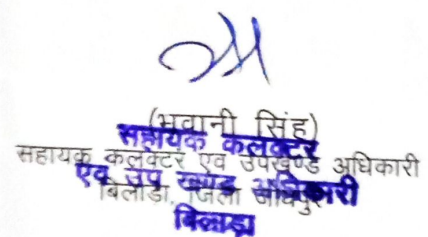 (भवानी सिंह)
सहायक कलक्टर
सहायक कलक्टर एवं उपखण्ड अधिकारी
एवं उप खण्ड अधिकारी
बिलाडा, जिला जोधपुर
बिलाड़ा